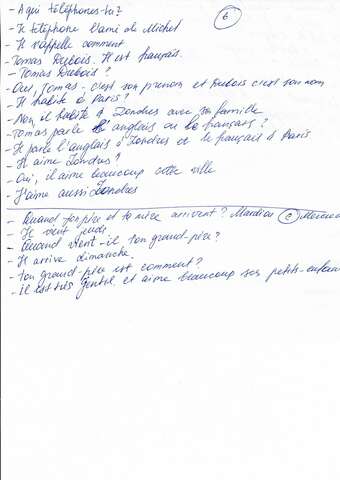 6
- A qui téléphones-tu?
- Je téléphone l'ami de Michel
- Il s'appelle comment
- Tomas Dubois. Il est français.
- Tomas Dubois?
- Oui, Tomas - c'est son prenom et Dubois c'est son nom
- Il habite à Paris?
- Non il habite à Londres avec sa famille
- Tomas parle l'anglais ou le français?
- Il parle l'anglais à Londres et le français à Paris
- Il aime Londres?
- Oui, il aime beaucoup cette ville
- J'aime aussi Londres
- Quand ton père et ta mère arrivent?
- Il vient jeudi
- Quand vient-il ton grand-père?
- Il arrive dimanche.
- Ton grand-père est comment?
- Il est très gentil et aime beaucoup ses petits-enfan